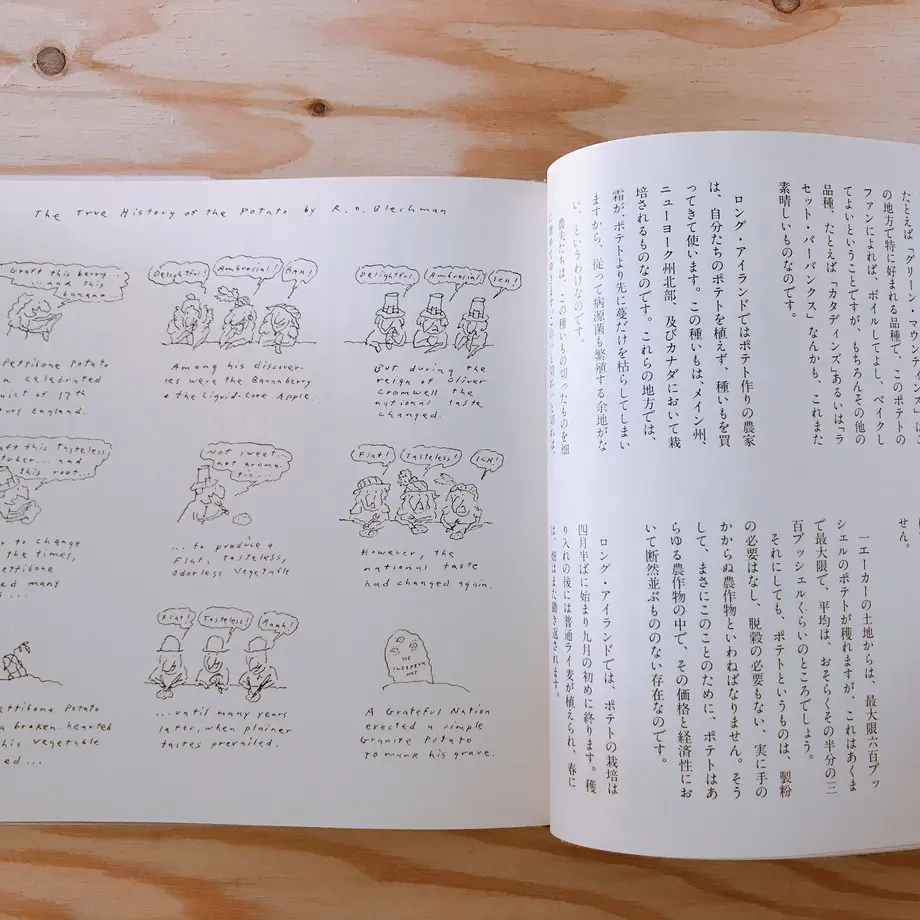 The True History of the Potato by R.O. Blechman
Graft this berry...
...and this
banana
Pettibone Potato
a celebrated
of 17th
England.
Delightful!
Ambrosial!
Aah!
Among his discover-
ies were the Bananberry
& the Liquid-Core Apple.
Delightful
Ambrosial!
Ich!
But during the
reign of Oliver
Cromwell the
national taste
changed.
this Tasteless
and
this root...
to change
the times,
Pettibone
many
...
Not sweet...
not aroma-
tic...
... to produce a
Flat, Tasteless,
Odorless Vegetable
Flat!
Tasteless!
Ich!
However, the
national taste
had changed again.
Pettibone Potato
a broken hearted
his vegetable
...
Flat!
Tasteless!
Aaah!
...until many years
later, when plainer
tastes prevailed.
A Grateful Nation
erected a simple
Granite Potato
to mark his grave.
たとえば「グリーン・マウンテ
の地方で特に好まれる品種で、このポテトの
ファンによれば、ボイルしてよし、ベイクし
てよいということですが、もちろんその他の
品種、たとえば「カタディンズ」あるいは「ラ
セット・バーバンクス」なんかも、これまた
素晴しいものなのです。
ロング・アイランドではポテト作りの農家
は、自分たちのポテトを植えず、種いもを買
ってきて使います。この種いもは、メイン州、
ニューヨーク州北部、及びカナダにおいて栽
培されるものなのです。これらの地方では、
霜が、ポテトより先に蔓だけを枯らしてしまい
ますから、従って病源菌も繁殖する余地がな
い、というわけなのです。
農夫たちは、この種いもの切ったものを畑
せん。
一エーカーの土地からは、最大限六百ブッ
シェルのポテトが穫れますが、これはあくま
で最大限で、平均は、おそらくその半分の三
百ブッシェルくらいのところでしょう。
それにしても、ポテトというものは、製粉
の必要はなし、脱穀の必要もない、実に手の
かからぬ農作物といわねばなりません。そう
して、まさにこのことのために、ポテトはあ
らゆる農作物の中で、その価格と経済性にお
いて断然並ぶもののない存在なのです。
ロング・アイランドでは、ポテトの栽培は
四月半ばに始まり九月の初めに終ります。穫
り入れの後には普通ライ麦が植えられ、春に
は、畑はまた鋤き返されます。